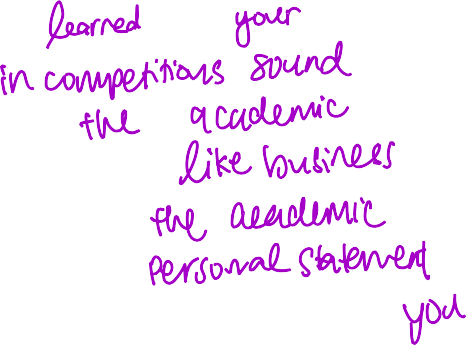 learned your
in competitions sound
the academic
like business
the academic
personal statement
you